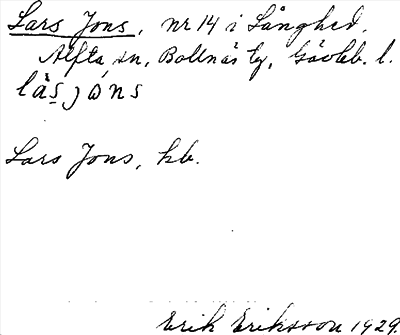 Lars Jons, nr 14 i Långhed,
Alfta sn, Bollnäs tg, Gävleb. l.
Lars Jons, kb.
Erik Eriksson 1929.